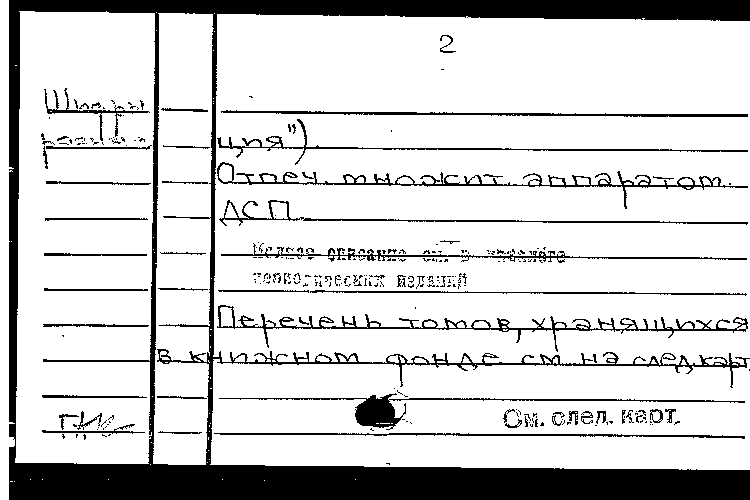 2
Шифры
ция").
Отпеч. множит. аппаратом.
ДСП.
Полное описание см. в каталоге
периодических изданий
Перечень томов, хранящихся
в книжном фонде см. на след. карт.
См. след. карт.